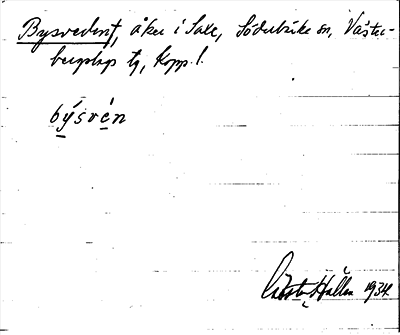 Bysvedent, åker i Saxe, Söderbärke sn, Väster-
bergslags tg, Kopp. l.
býsvén
Hallén 1934